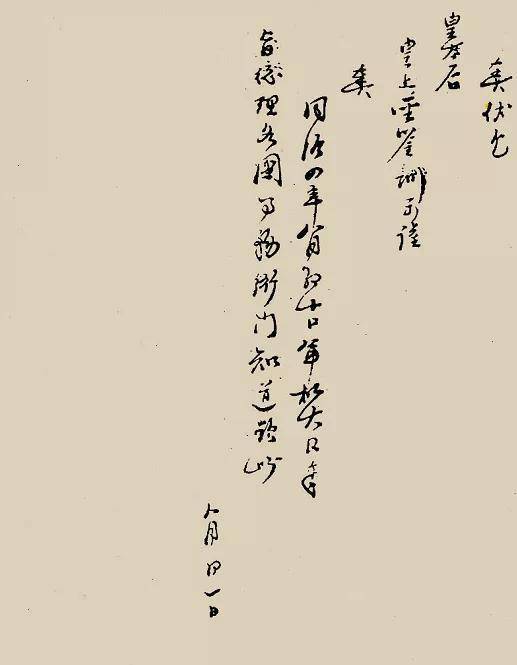 奏伏乞
皇太后
皇上聖鑒訓示謹
奏
同治四年八月初十日軍機大臣奉
旨總理各國事務衙門知道欽此
八月一日